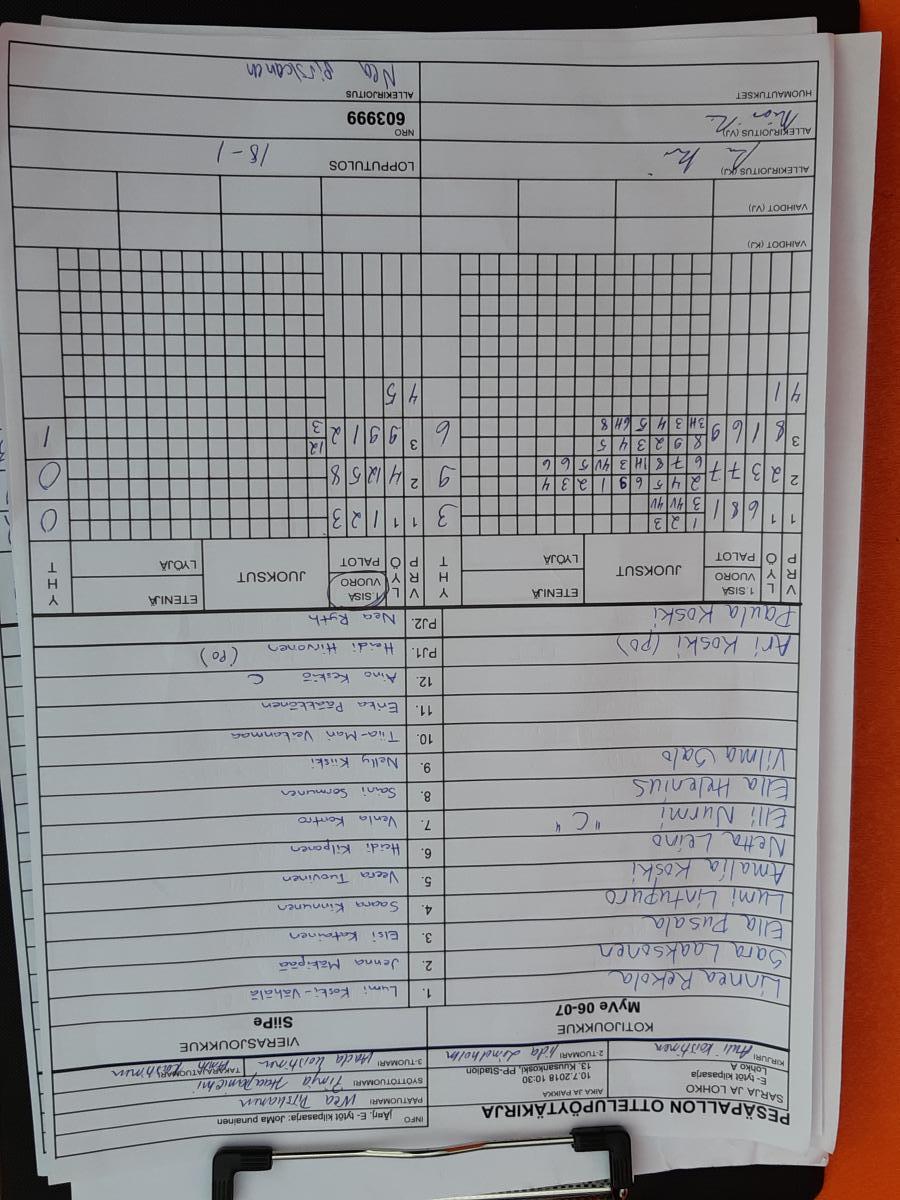 PESÄPALLON OTTELUPÖYTÄKIRJA
INFO
Järj. E- tytöt kilpasarja: JoMa punainen
SARJA JA LOHKO
E- tytöt kilpasarja
Lohko A
AIKA JA PAIKKA
10.7.2018 10:30
13. Kuusankoski, PP-Stadion
PÄÄTUOMARI
SYÖTTÖTUOMARI Pinja Haapaniemi
KIRJURI
2-TUOMARI Iida Lindholm
3-TUOMARI
TAKARAJATUOMARI
KOTIJOUKKUE
MyVe 06-07
VIERASJOUKKUE
SiiPe
Linnea Rekola 1. Lumi Koski-Vähälä
Sara Laaksonen 2. Jenna Mäkipää
Ella Pusala 3. Elsi Katainen
Lumi Lintupuro 4. Saana Kinnunen
Amalia Koski 5. Veera Tuovinen
Netta Leino 6. Heidi Kilponen
Elli Nurmi "C" 7. Venla Kontro
Ella Helenius 8. Sanni Sormunen
Vilma Salo 9. Nelly Kiiski
10. Tiia-Mari Vatanmaa
11. Erika Päätönen
12. Aino Keskiö C
Ari Koski (PO) PJ1. Heidi Hirvonen (PO)
Paula Koski PJ2. Nea Ryth
V P R V L Y Ö 1.SISÄ VUORO PALOT JUOKSUT ETENIJÄ LYÖJÄ Y H T V P R V L Y Ö 1.SISÄ VUORO PALOT JUOKSUT ETENIJÄ LYÖJÄ Y H T
1 1 6 8 1 1 2 3 3 1 1 1 2 3 0
3 4V 4V
2 2 3 7 7 2 4 5 6 9 1 2 3 4 9 2 4 12 5 8 0
6 7 8 1H 3 4V 5 6 6
3 8 1 6 9 8 9 2 3 4 5 6 3 9 9 1 2 12 1
3H 3 4 5 6H 8 3
4 1 4 5
VAIHDOT (KJ)
VAIHDOT (VJ)
ALLEKIRJOITUS (KJ)
LOPPUTULOS 18-1
ALLEKIRJOITUS (VJ)
NRO
603999
HUOMAUTUKSET
ALLEKIRJOITUS
Nea